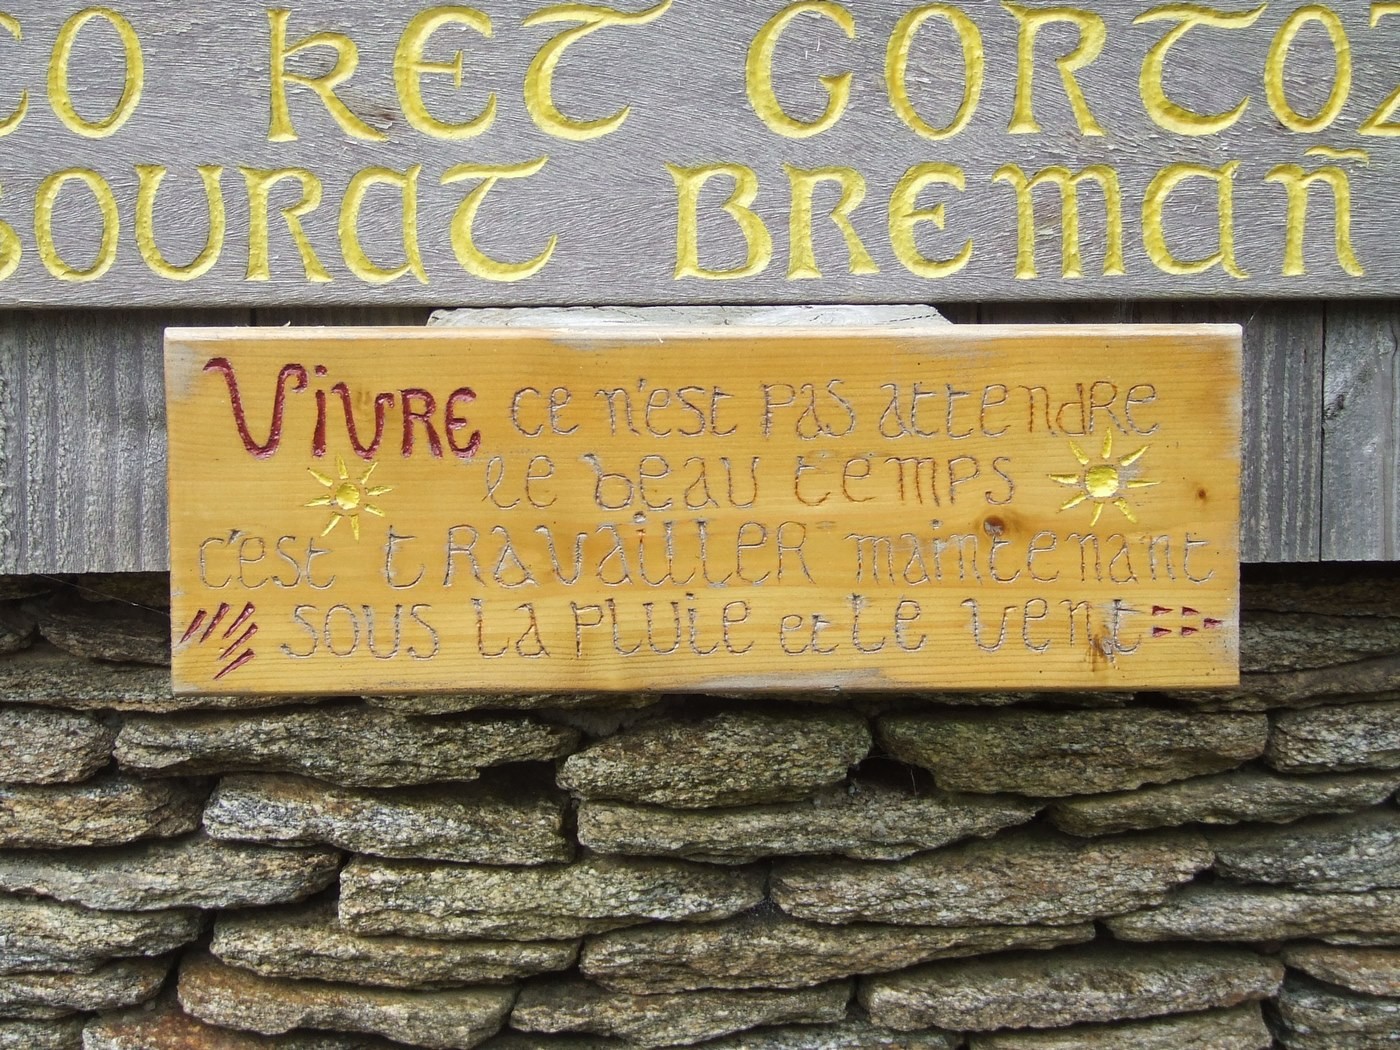 EO KET GORTOZ
GOURAT BREMAÑ
VIVRE ce n'est pas attendre
le beau temps
c'est travailler maintenant
sous la pluie et le vent